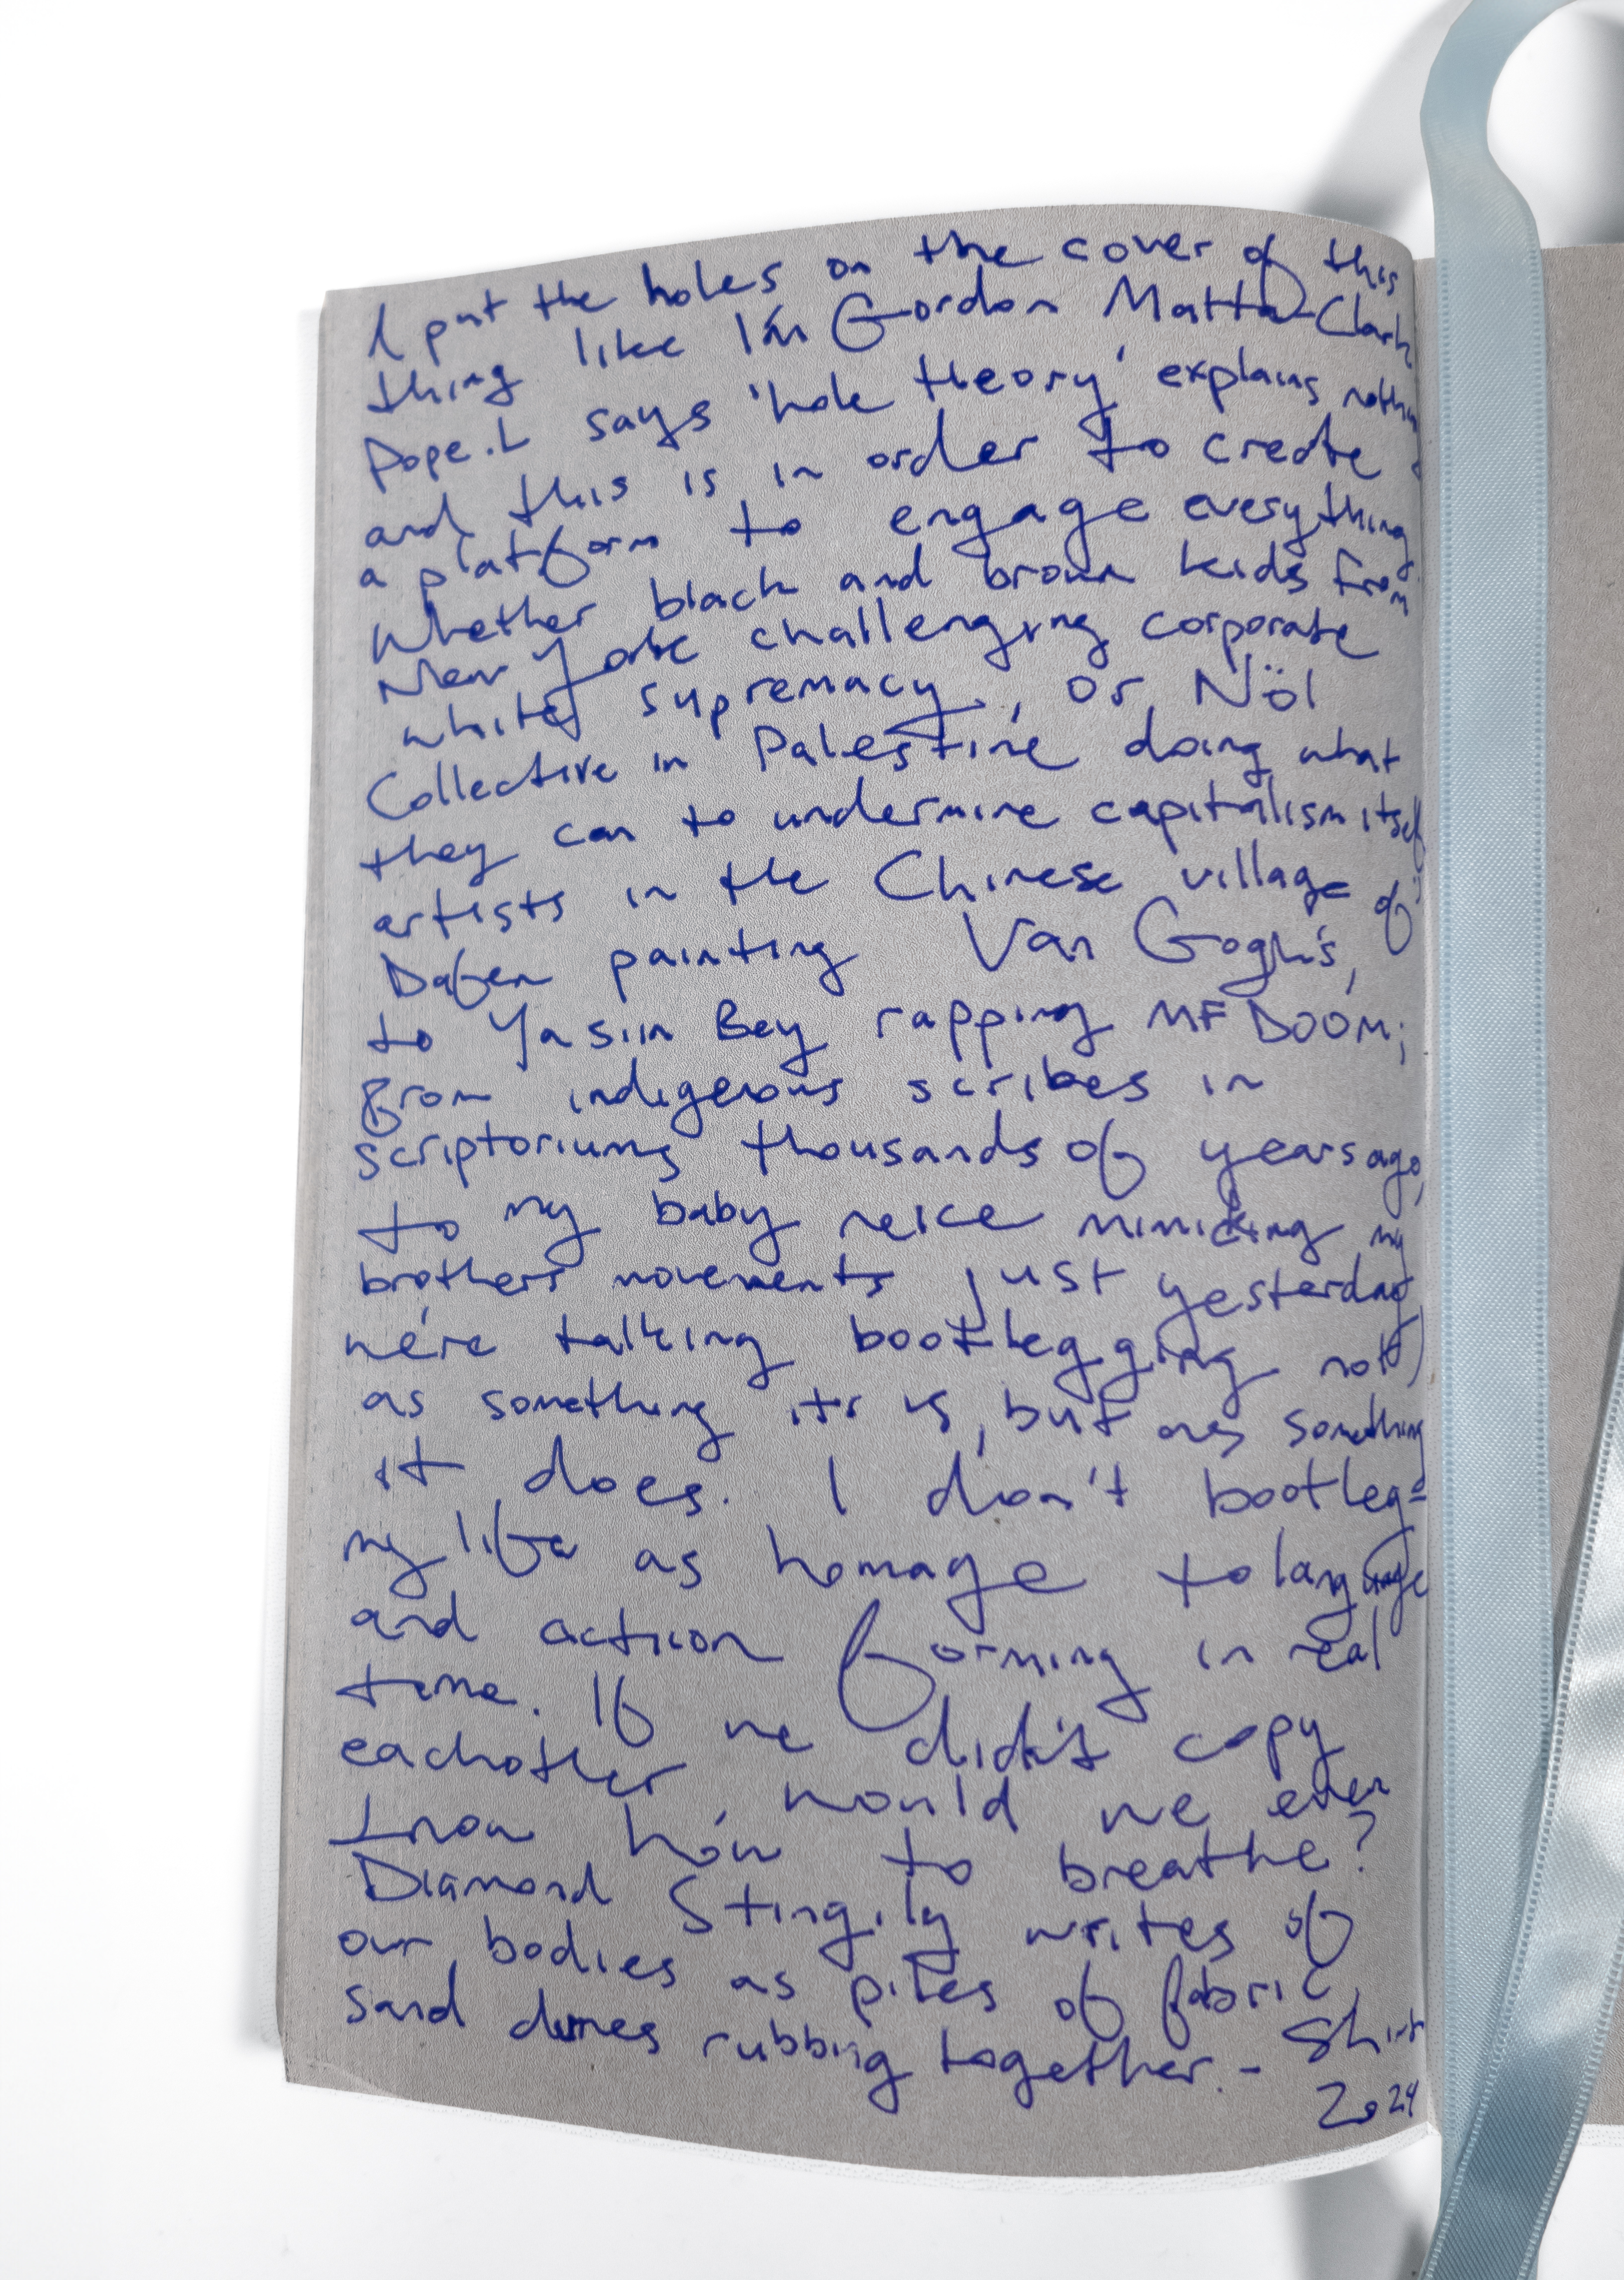 I put the holes on the cover of this
thing like I'm Gordon Matta-Clark
Pope.L says 'hole theory' explains nothing
and this is in order to create
a platform to engage everything.
Whether black and brown kids from
New York challenging corporate
white supremacy, or Nöl
Collective in Palestine doing what
they can to undermine capitalism itself;
artists in the Chinese village of
Dafen painting Van Gogh's,
to Yasiin Bey rapping MF DOOM;
from indigenous scribes in
scriptoriums thousands of years ago,
to my baby neice mimicking my
brothers movements just yesterday,
we're talking bootlegging not
as something it is, but as something
it does. I don't bootleg =
my life as homage to language
and action forming in real
time. If we didn't copy
eachother would we even
know how to breathe?
Diamond Stingily writes of
our bodies as piles of fabric,
sand dunes rubbing together. - Shirt
2024